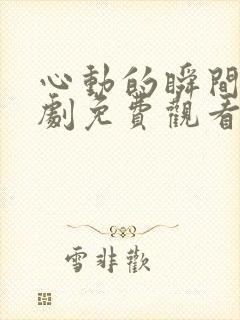 心動的瞬間
劇免費觀看
雪非歡